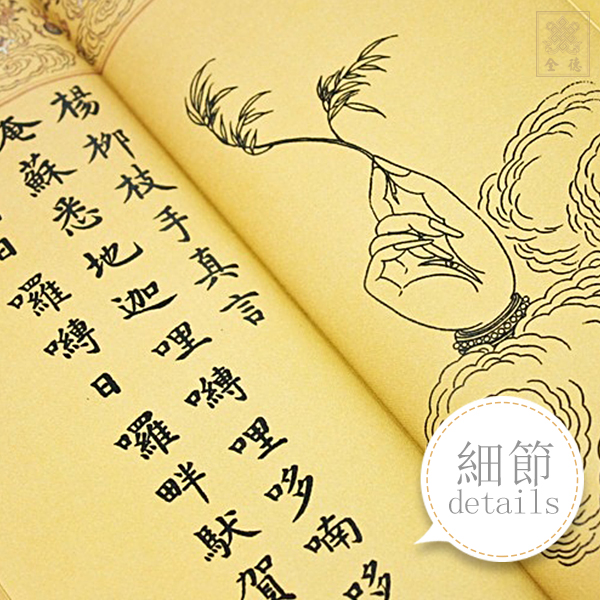 楊柳枝手真言
唵蘇悉地迦哩嚩哩哆喃哆
日囉嚩日囉畔馱賀
細節
details
金德